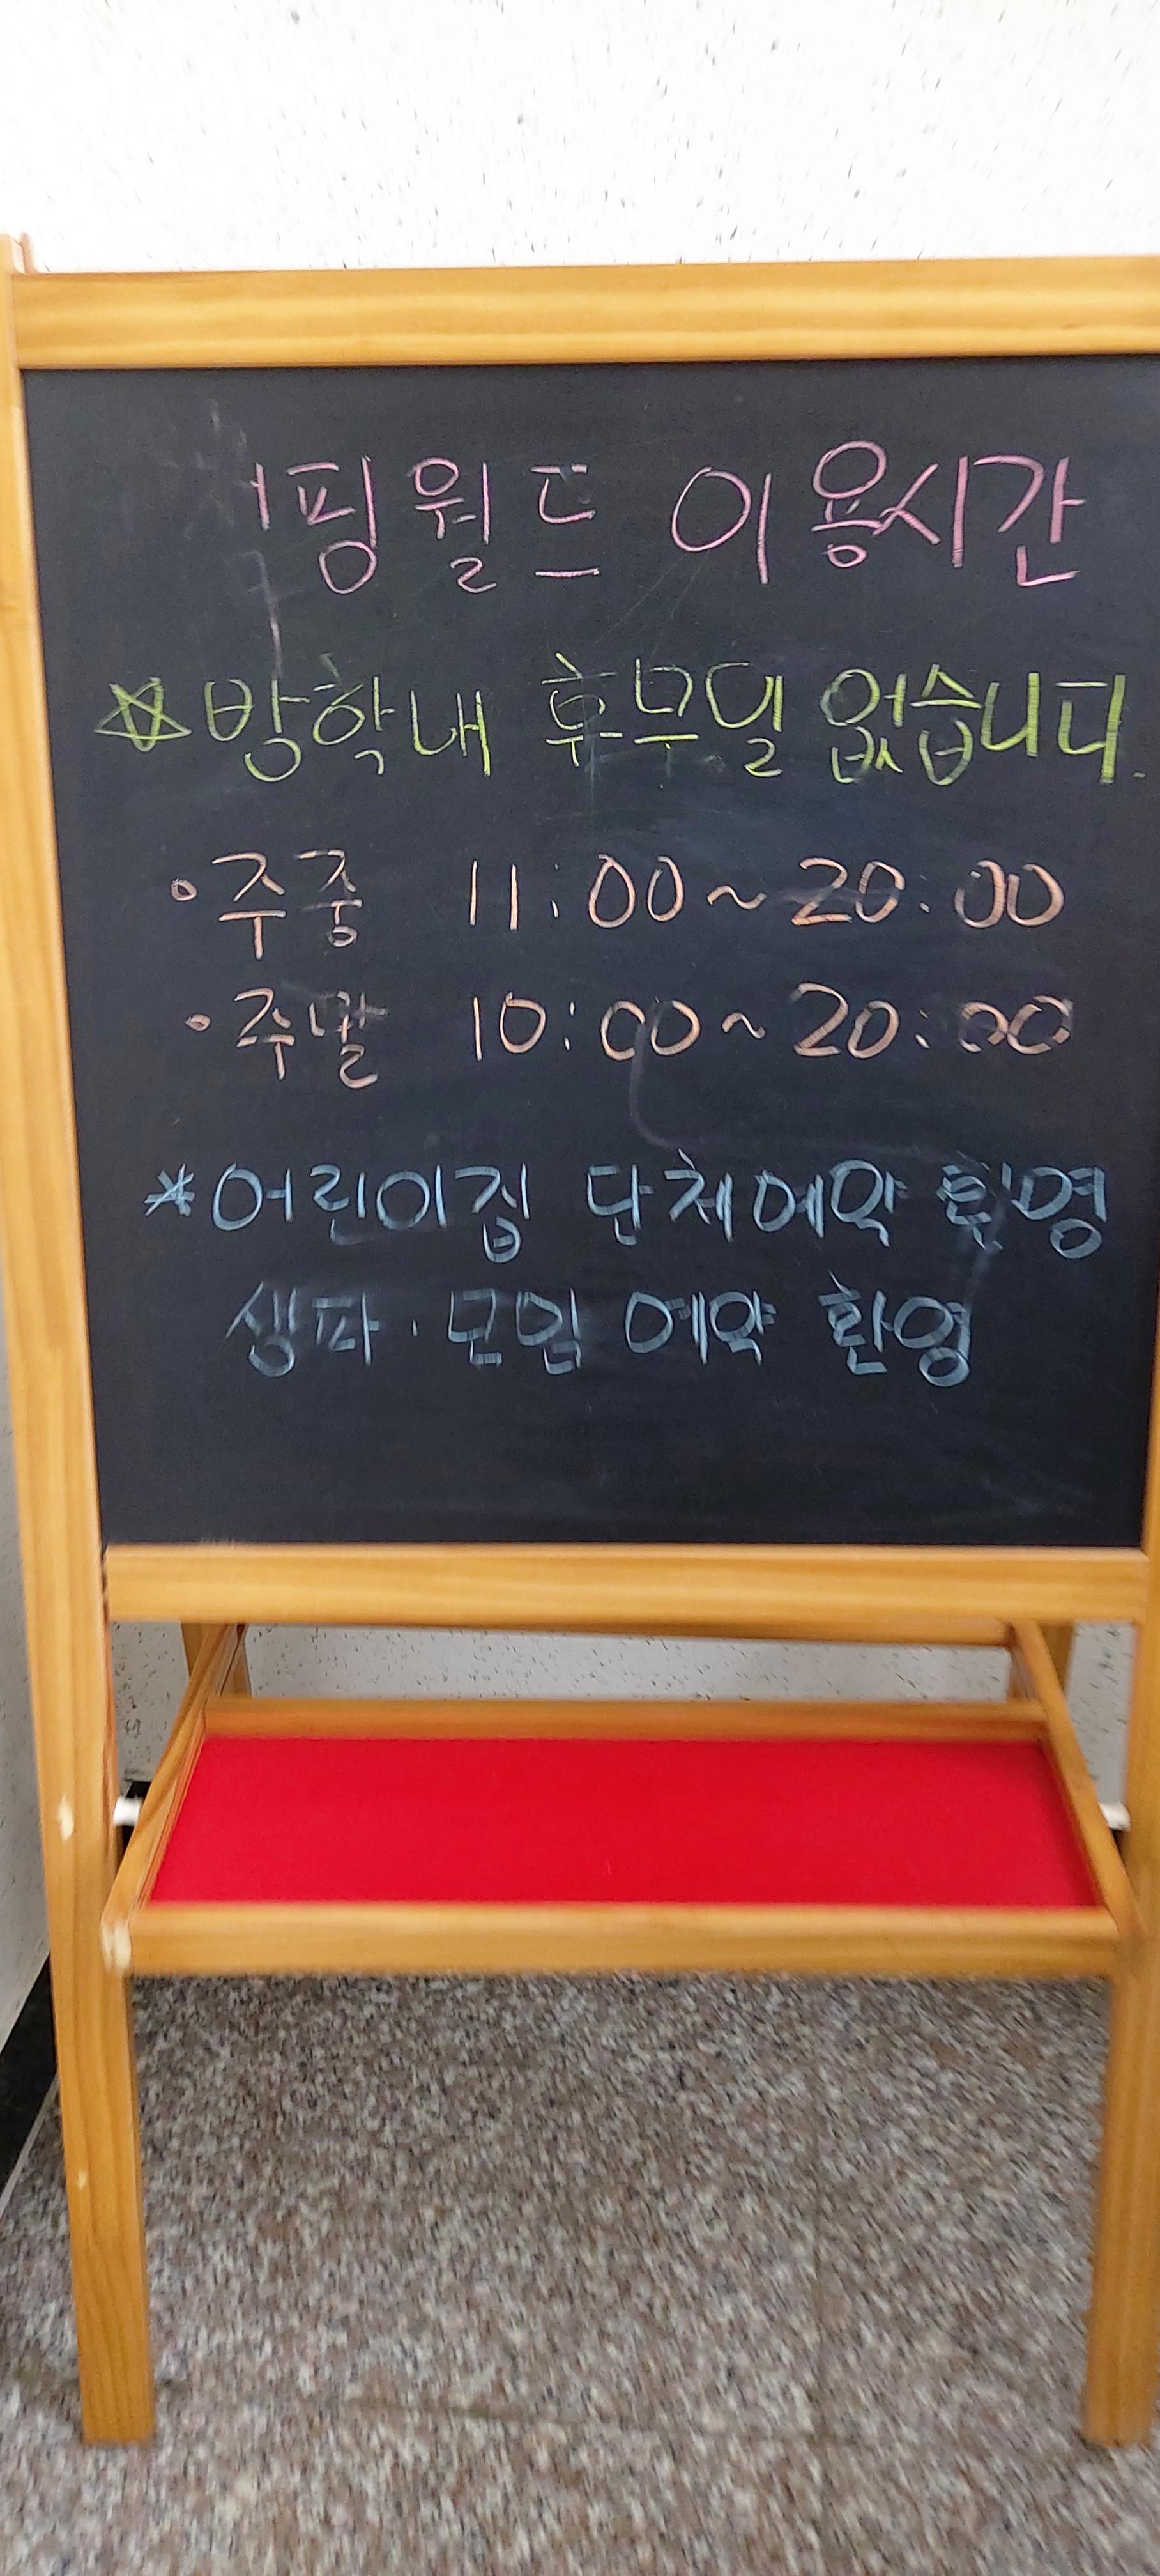 핑월드 이용시간
☆방학내 휴무일 없습니다.
◦주중 11:00~20:00
•주말 10:00~20:00
*어린이집 단체예약 환영
생파·모임 예약 환영